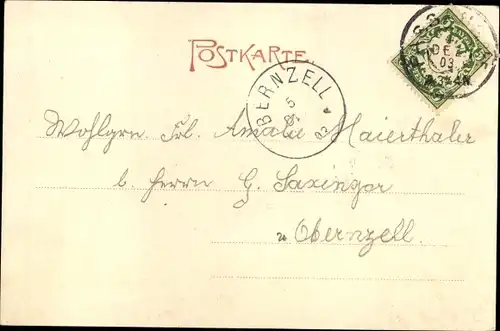 POSTKARTE.
DEZ
03
OBERNZELL
5
Wohlgrn. Frl. Amalie Maierthaler
b. Herrn G. Saxinger
Obernzell.